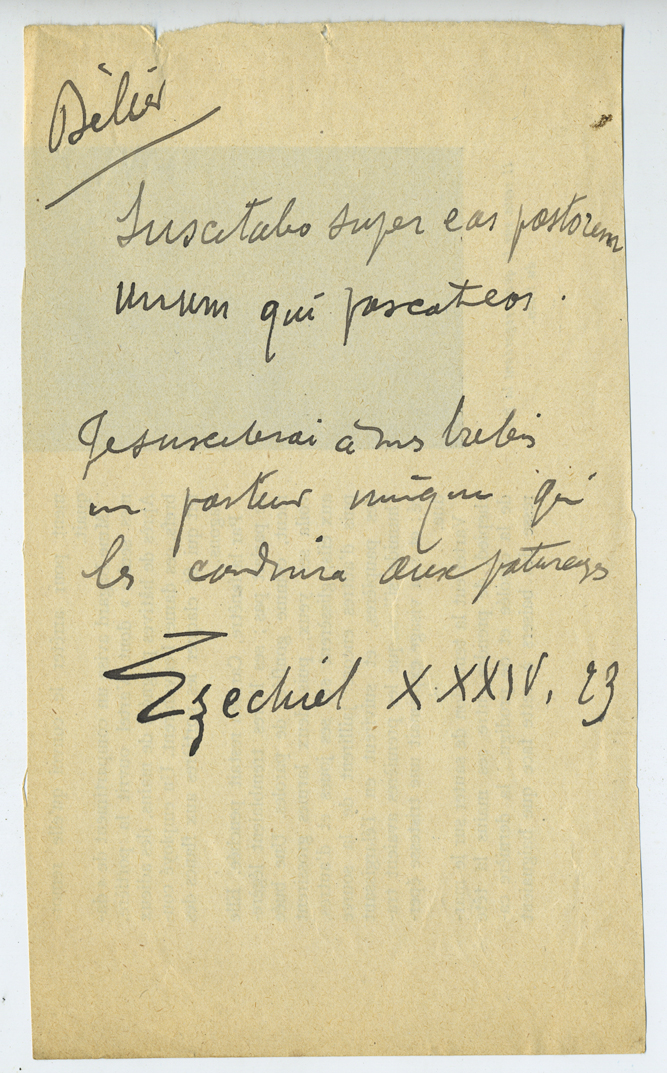 Bélier
Suscitabo super eas pastorem
unum qui pascat eos.
Je susciterai à mes brebis
un pasteur unique qui
les conduira aux paturages
Ezechiel XXXIV, 23